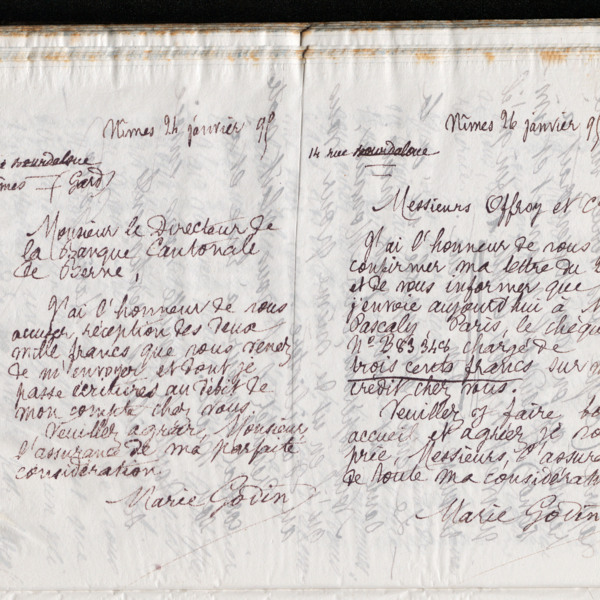 Nîmes 24 janvier 95
rue Bourdaloue
Nîmes (Gard)
Monsieur le Directeur de
la Banque Cantonale
de Berne,
J'ai l'honneur de vous
accuser réception des deux
mille francs que vous venez
de m'envoyer et dont je
passe écritures au débit de
mon compte chez vous.
Veuillez agréer, Monsieur
l'assurance de ma parfaite
considération
Marie Godin
Nîmes 26 janvier 95
14 rue Bourdaloue
Messieurs Offroy et C
J'ai l'honneur de vous
confirmer ma lettre du
et de vous informer que
j'envoie aujourd'hui à
Pascaly, Paris, le chèque
N° B83348 chargé de
trois cents francs sur
crédit chez vous.
Veuillez y faire bon
accueil et agréer je vous
prie, Messieurs, l'assura
de toute ma considérat
Marie Godin